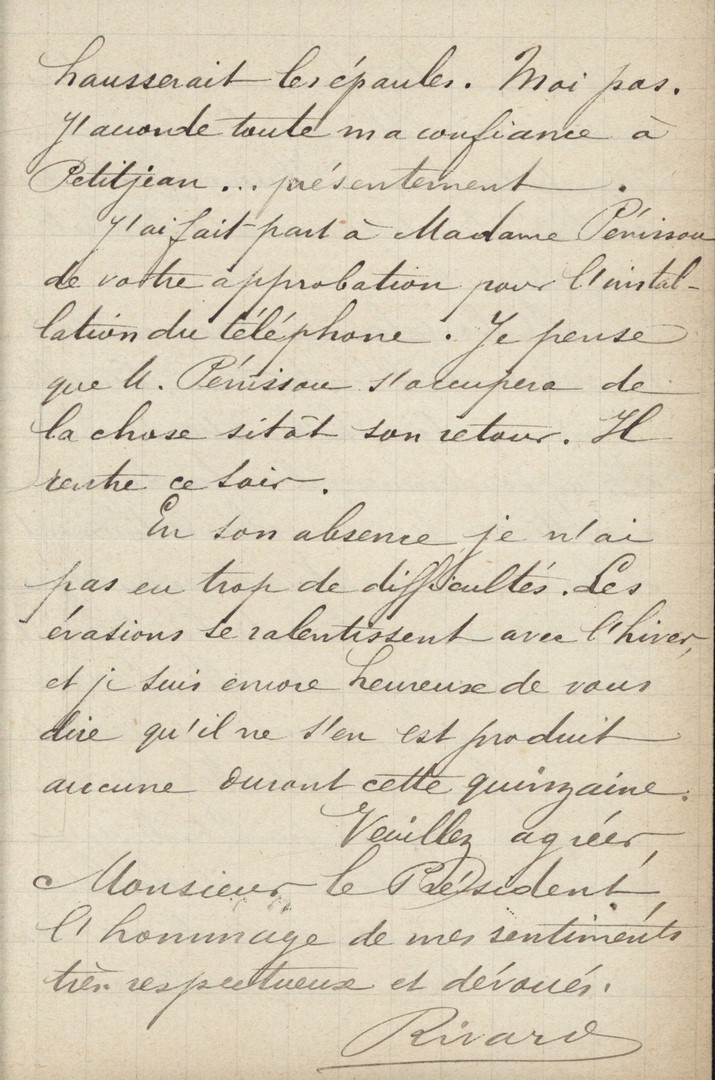 hausserait les épaules. Moi pas.
J'accorde toute ma confiance à
Petitjean... présentement.
J'ai fait part à Madame Pénissou
de votre approbation pour l'instal-
lation du téléphone. Je pense
que M. Pénissou s'occupera de
la chose sitôt son retour. Il
rentre ce soir.
En son absence je n'ai
pas eu trop de difficultés. Les
évasions se ralentissent avec l'hiver,
et je suis encore heureux de vous
dire qu'il ne s'en est produit
aucune durant cette quinzaine.
Veuillez agréer,
Monsieur le Président,
l'hommage de mes sentiments
très respectueux et dévoués.
Rivard